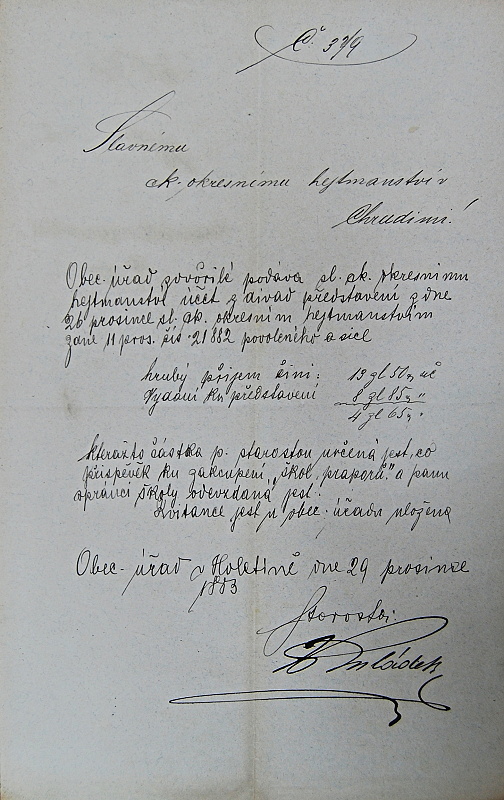 Č. 37/9
Slavnému
ck. okresnímu hejtmanství v
Chrudimi!
Obec. úřad zdvořile podává sl. ck. okresnímu
hejtmanství účet z divad představení z dne
26 prosince sl. ck. okresním hejtmanstvím
zane 11 pros. čís. 21882 povoleného a sice
hrubý příjem činí: 13 zl 51
Vydání ku představení 8 zl 85 "
4 zl 65 "
kteražto částka p. starostou určená jest, co
příspěvek ku zakoupení "škol. praporů" a panu
správci školy odevzdaná jest.
Kvitance jest u obec. úřadu uložena
Obec. úřad v Holetíně dne 29 prosince
1883
Starosta: